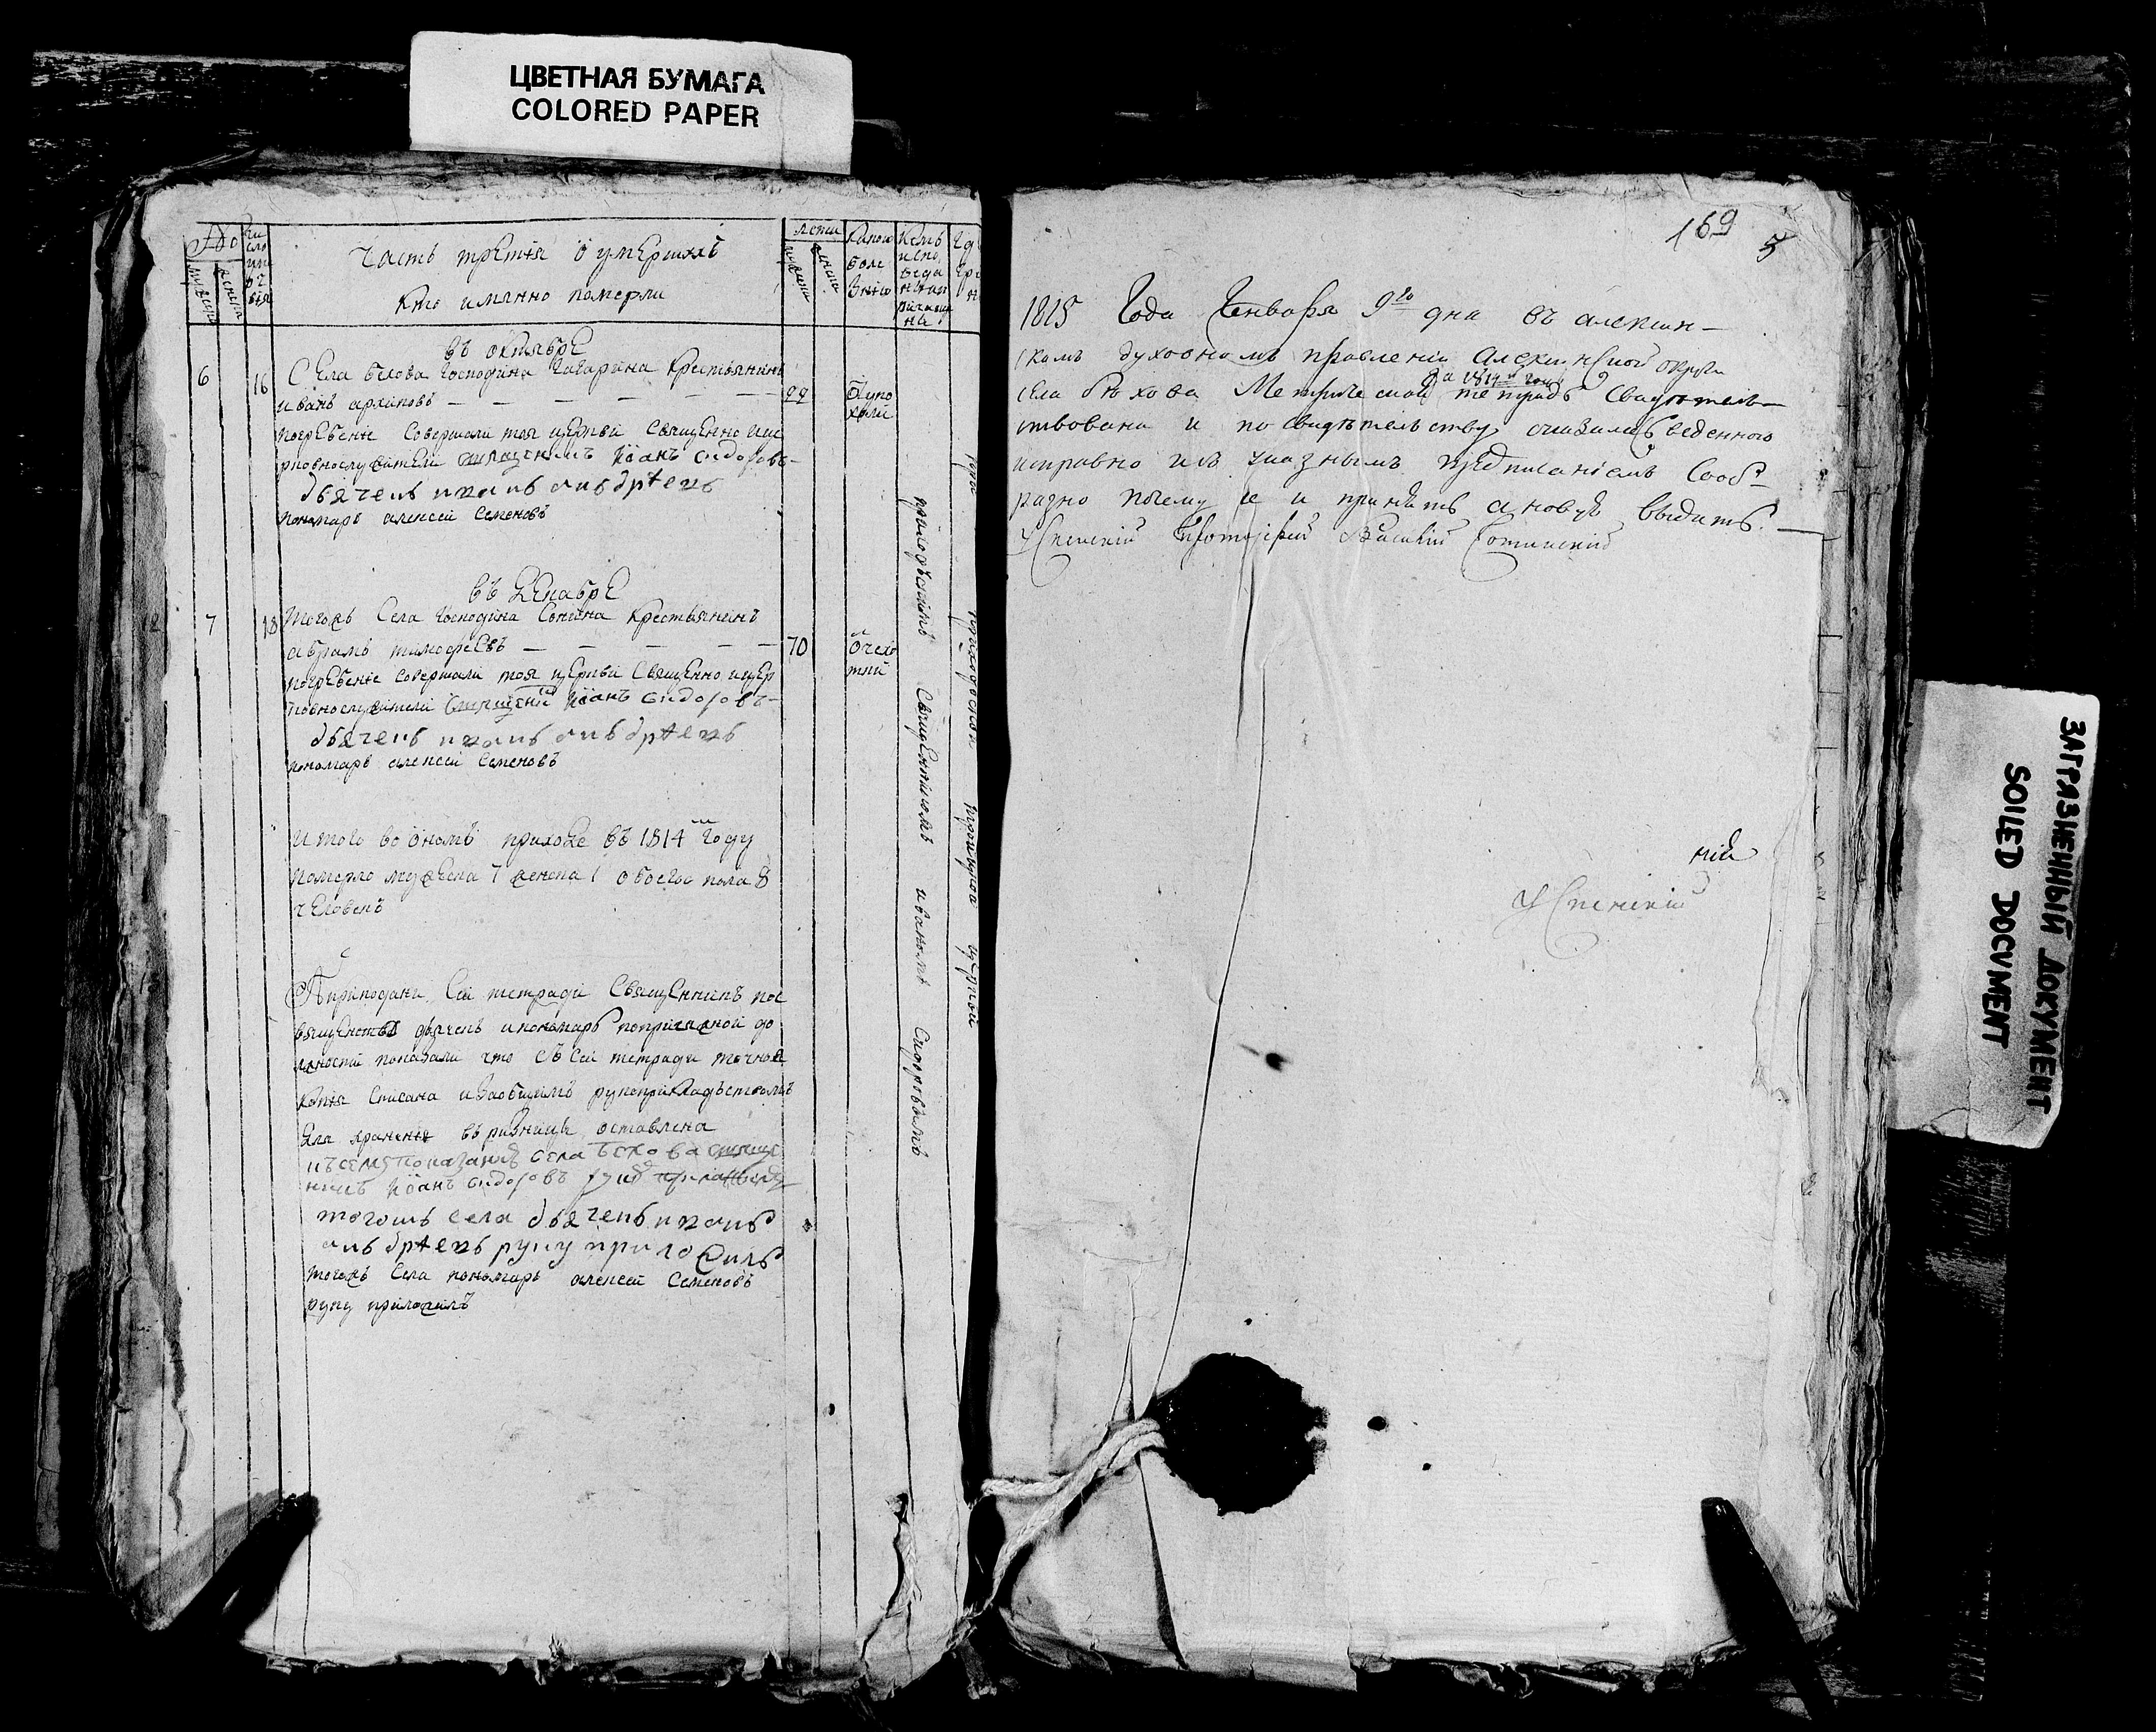 ЦВЕТНАЯ БУМАГА
COLORED PAPER
часть третїя о умершихъ
кто имянно померли
лета
въ октябрѢ
6
16
села бехова Господина Гагарина Крестьянинъ
иванъ архиповъ
погребенїе совершали тоя церкви священно и це
рковнослужители священникъ Їоанъ сидоровъ
дьячекъ иванъ андрѣевъ
пономарь алексей Семеновъ
въ декабре
7
18
тогожъ Села Господина Крестьянинъ
абрамъ тимофеевъ
70
погребенїе совершали тоя церкви Священно и цер
ковнослужители Їоанъ сидоровъ
дьячекъ иванъ андрѣевъ
пономарь алексей Семеновъ
итого во ономъ приходе въ 1814 году
померло мужеска 7 женска 1 обоего пола 8
человекъ
При подачи сей тетради Священникъ по
священству дьячекъ и пономарь по присяжной до
лжности показали что съ сей тетради точная
копїя списана и за общимъ рукоприкладъствомъ
для храненїя въ ризнице оставлена
къ сему показанию села бехова священ
никъ Їоанъ сидоровъ руку приложилъ
тогожъ села дьячекъ иванъ
андрѣевъ руку приложилъ
тогожъ Села пономарь алексей Семеновъ
руку приложилъ
приходъскимъ Священникомъ иваномъ Сидоровымъ
при церкви
169
1815 Года Генваря 9го дня въ алексин-
скомъ духовномъ правленїи алексинской округи
села бѣхова Метрическая за 1814й годъ тетрадь свидѣтель-
ствована и по свидѣтельству оказалась веденною
исправно и съ указнымъ предписанїемъ сооб-
разно почему ее и принять а новую выдать.
Успенский Протоїерей Василїй
нїй
Успенскїй
ЗАГРЯЗНЕННЫЙ ДОКУМЕНТ
SOILED DOCUMENT